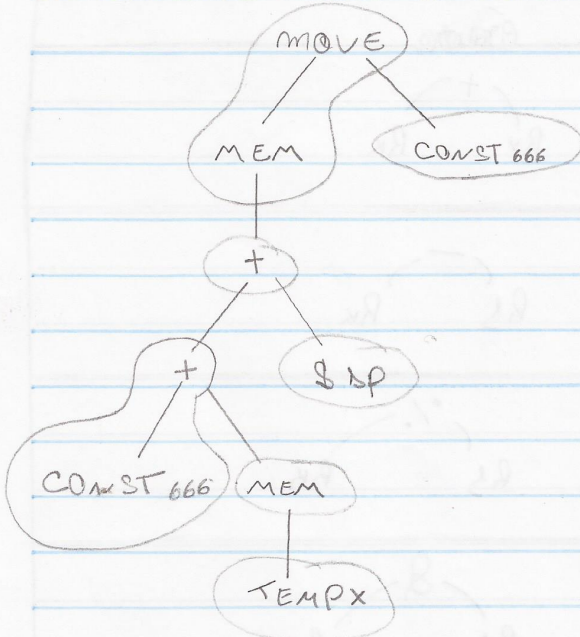 MOVE
MEM CONST 666
+
+ $ SP
CONST 666 MEM
TEMP X